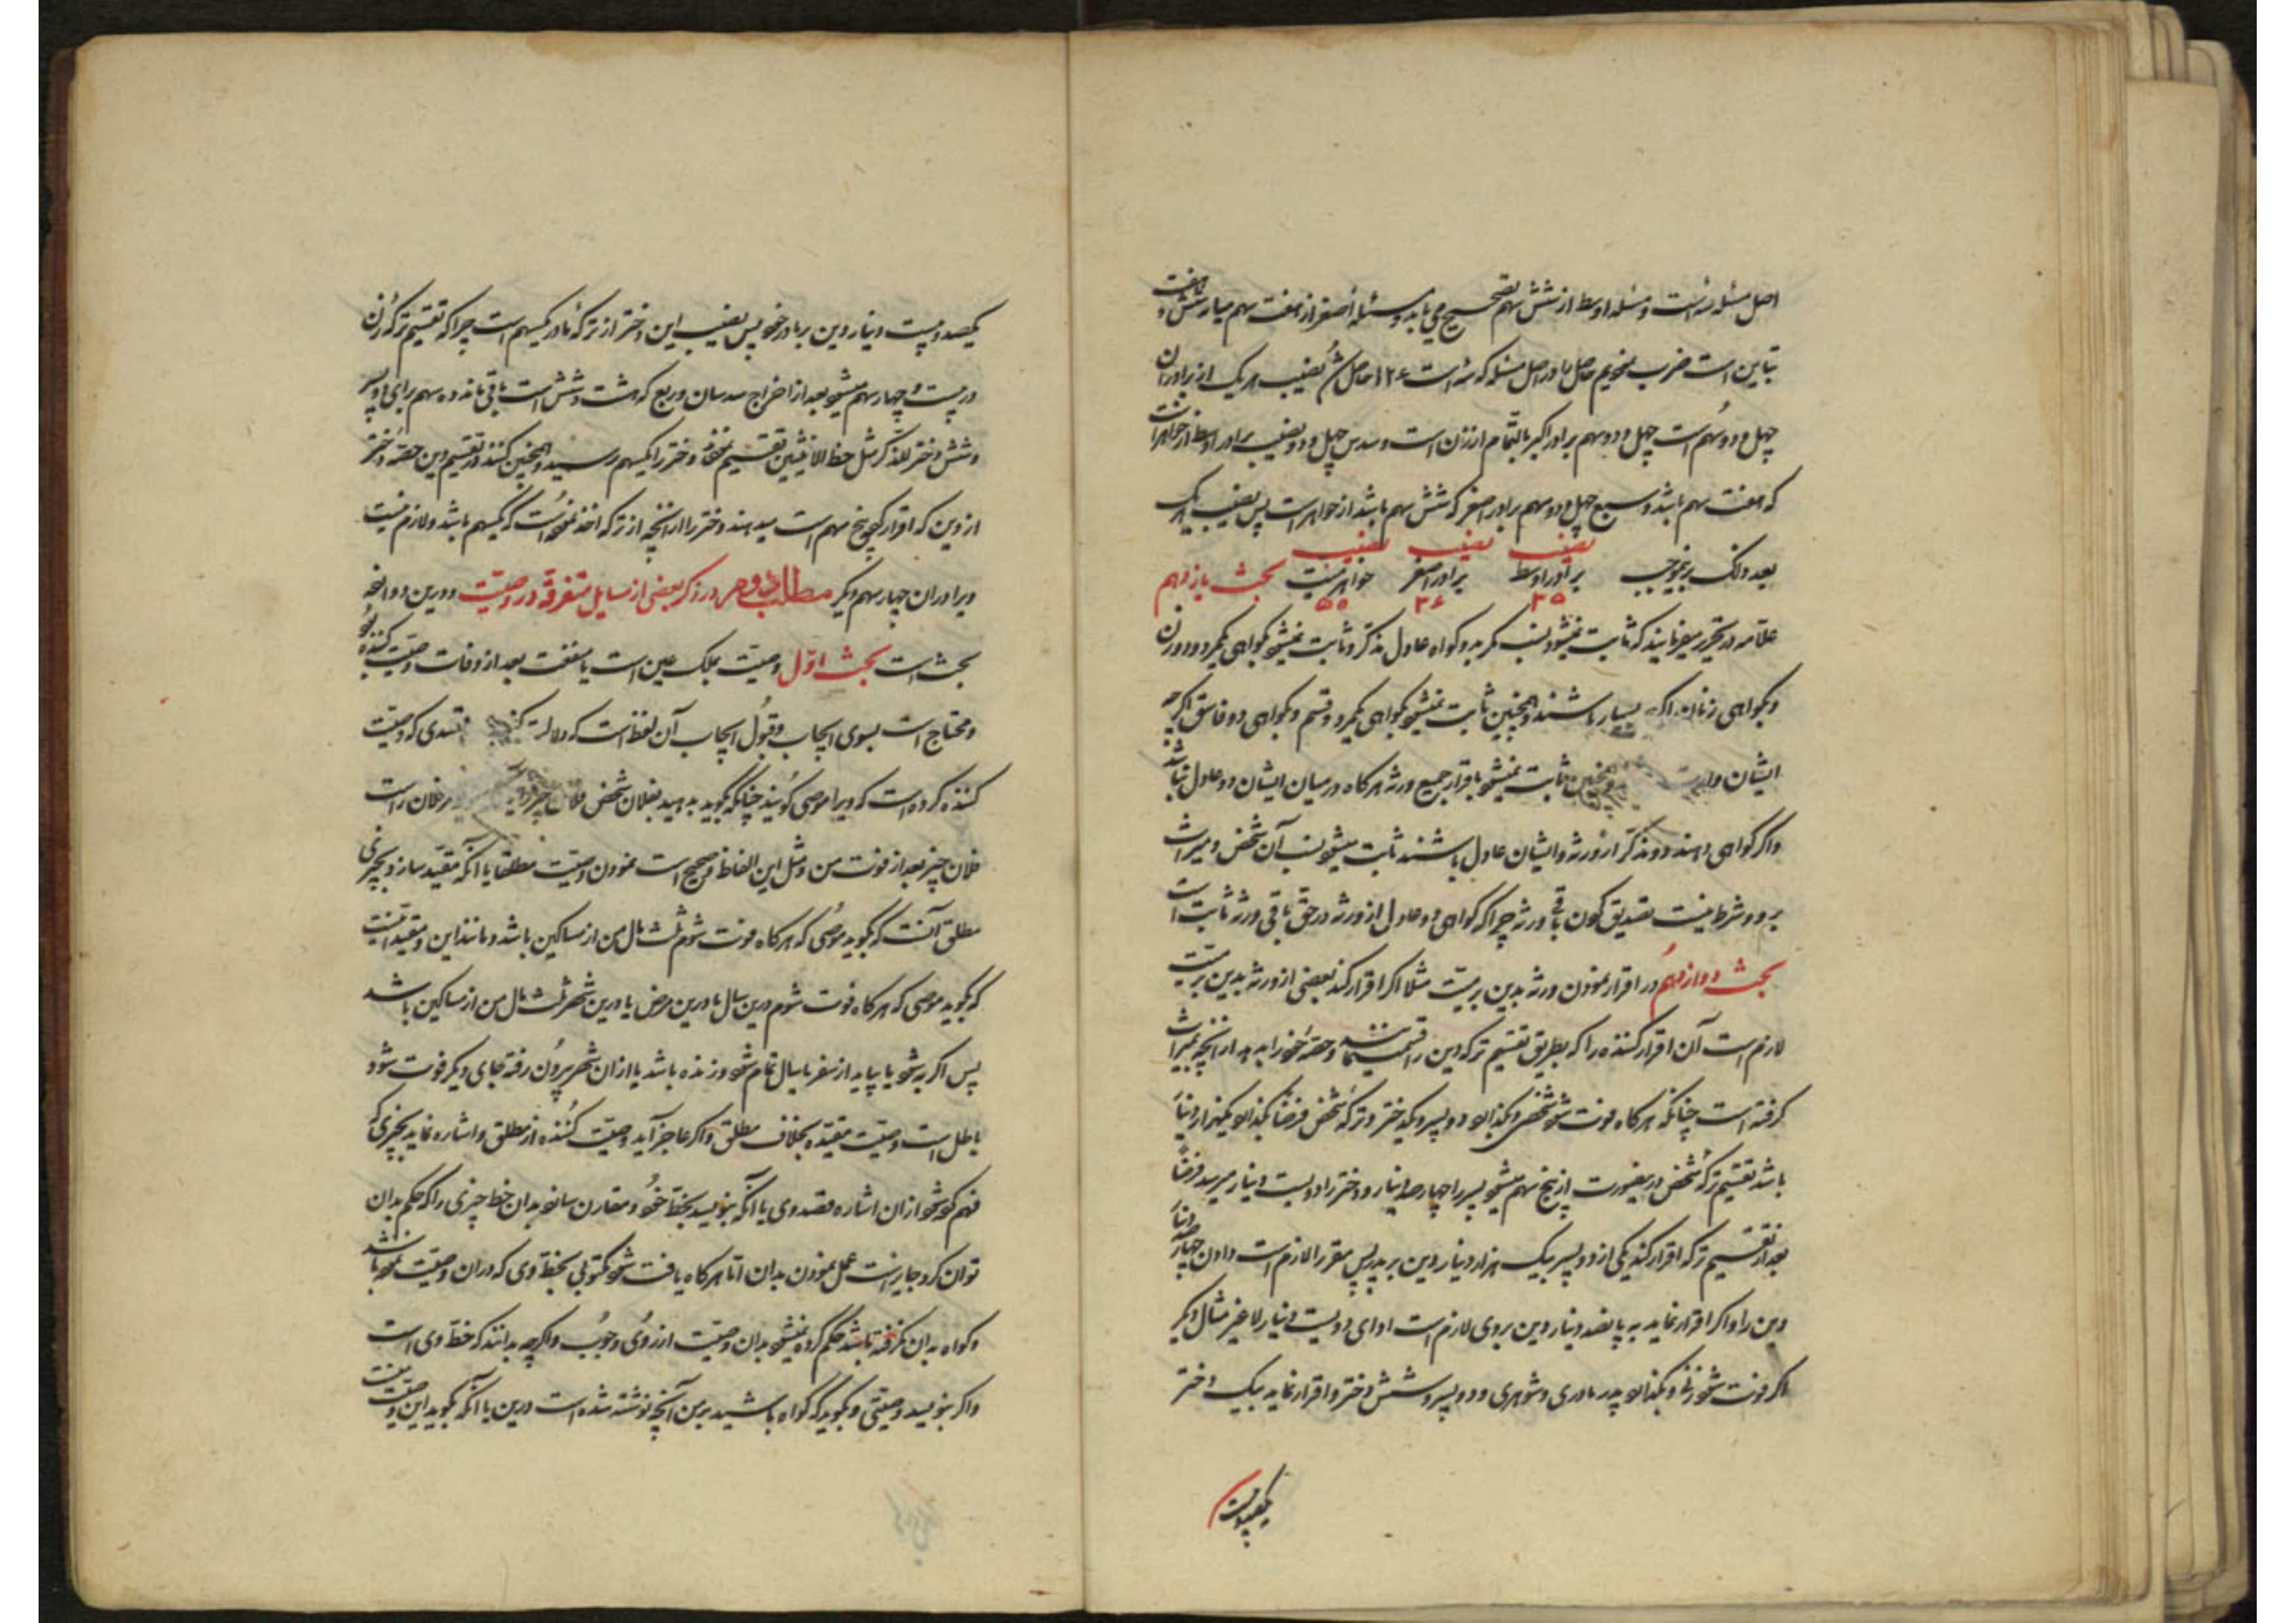 اصل مسئله سه است و مسئله اوسط از شش سهم تصحیح می یابد و مسئله اصغر از هفت سهم میان شش و هفت
تباین است ضرب نمودیم حاصل را در اصل مسئله که سه است ۱۲۶ حاصل شد نصیب هر یک از برادران
چهل و دو سهم است چهل و دو سهم برادر اکبر بالتمام از زن است و سدس چهل و دو نصیب برادر اوسط از خواهر است
که هفت سهم باشد و سبع چهل و دو سهم برادر اصغر که شش سهم باشد از خواهر است پس نصیب هر یک
بعد ذلک بدینموجب نصیب برادر اوسط ۳۵ نصیب برادر اصغر ۳۶ نصیب خواهر بحث یازدهم
علامه در تحریر میفرمایند که ثابت نمیشود نسب مگر بدو گواه عادل مذکر و ثابت نمیشود بگواهی یکمرد و دو زن
و بگواهی زنان اگرچه بسیار باشند و همچنین ثابت نمیشود بگواهی یکمرد و قسم و بگواهی دو فاسق اگرچه
ایشان وارث و همچنین ثابت نمیشود باقرار جمیع ورثه هرگاه در میان ایشان دو عادل نباشد
و اگر گواهی دهند دو مذکر از ورثه و ایشان عادل باشند ثابت میشود نسب آن شخص و میراث
برد و شرط نیست تصدیق کردن باقی ورثه چراکه گواهی دو عادل از ورثه در حق باقی ورثه ثابت است
بحث دوازدهم در اقرار نمودن ورثه بدین بر میت مثلا اگر اقرار کند بعضی از ورثه بدین بر میت
لازم است آن اقرار کننده را که بطریق تقسیم ترکه دین را قسمت نماید و حصه خود را بدهد از آنچه بمیراث
گرفته است چنانکه هرگاه فوت شود شخصی و بگذارد دو پسر و یکدختر و ترکه شخص فرضا بگذارد یکهزار دینار
باشد تقسیم ترکه شخص درینصورت از پنج سهم میشود پسر را چهارصد دینار و دختر را دویست دینار میرسد فرضا
بعد از تقسیم ترکه اقرار کند یکی از دو پسر بیک هزار دینار دین بر پدر پس مقر را لازم است دادن چهار صد دینار
دین را و اگر اقرار نماید به پانصد دینار دین بروی لازم است ادای دویست دینار لا غیر مثال دیگر
اگر فوت شود زنی و بگذارد پدر مادری و شوهری و دو پسر و شش دختر و اقرار نماید بیک دختر
یکصد و بیست
یکصد و بیست دینار دین بر مادر خود پس نصیب این دختر از ترکه مادر یکسهم است چراکه تقسیم ترکه زن
در بیست و چهار سهم میشود بعد از اخراج سدسان و ربع که هشت و شش است باقی ماند ده سهم برای دو پسر
و شش دختر للذکر مثل حظ الانثیین تقسیم نموده دختر را یکسهم رسید و همچنین کنند در تقسیم دین حصه دختر
از دین که اقرار کرده پنج سهم است میدهند دختر را از آنچه از ترکه اخذ نموده است که یکسهم باشد و لازم نیست
ویرا دران چهار سهم دیگر مطلب دوم در ذکر بعضی از مسایل متفرقه در وصیت و درین دوازده
بحث است بحث اول وصیت تملک عین است یا منفعت بعد از وفات وصیت کننده
و محتاج است بسوی ایجاب و قبول ایجاب آن لفظ است که دلالت کند قصدی که وصیت
کننده کرده است که ویرا موصی گویند چنانکه بگوید بدهید بفلان شخص فلان چیز مر فلان راست
فلان چیز بعد از فوت من و مثل این الفاظ و صحیح است نمودن وصیت مطلقا یا آنکه مقید سازد بچیزی
مطلق آنست که بگوید موصی که هرگاه فوت شوم ثلث مال من از مساکین باشد و مانند این و مقید اینست
که بگوید موصی که هرگاه فوت شوم درین سال یا درین مرض یا درین شهر ثلث مال من از مساکین باشد
پس اگر به شود یا بیاید از سفر یا سال تمام شود و زنده باشد یا از ان شهر بیرون رفته جای دیگر فوت شود
باطل است وصیت مقیده بخلاف مطلق و اگر عاجز آید وصیت کننده از نطق و اشاره نماید بچیزی که
فهم کرده شود ازان اشاره قصد وی یا آنکه بنویسد بخط خود و مقارن سازد بدان خط چیزی را که حکم بدان
توان کرد جایز است عمل نمودن بدان اما هرگاه یافت شود مکتوبی بخط وی که دران وصیت نموده باشد
و گواه بدان نگرفته باشد حکم کرده نمیشود بدان وصیت از روی وجوب و اگرچه بدانند که خط وی است
و اگر بنویسد وصیتی و بگوید که گواه باشید برین آنچه نوشته شده است درین یا آنکه بگوید این وصیت